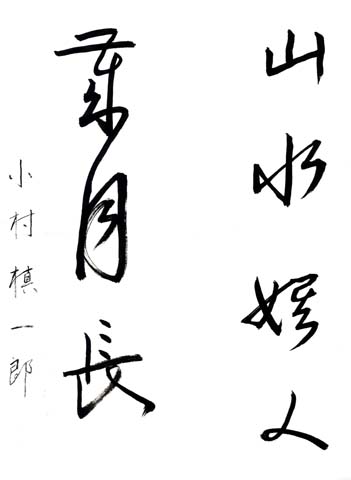 山水娯人
歳月長
小村槙一郎